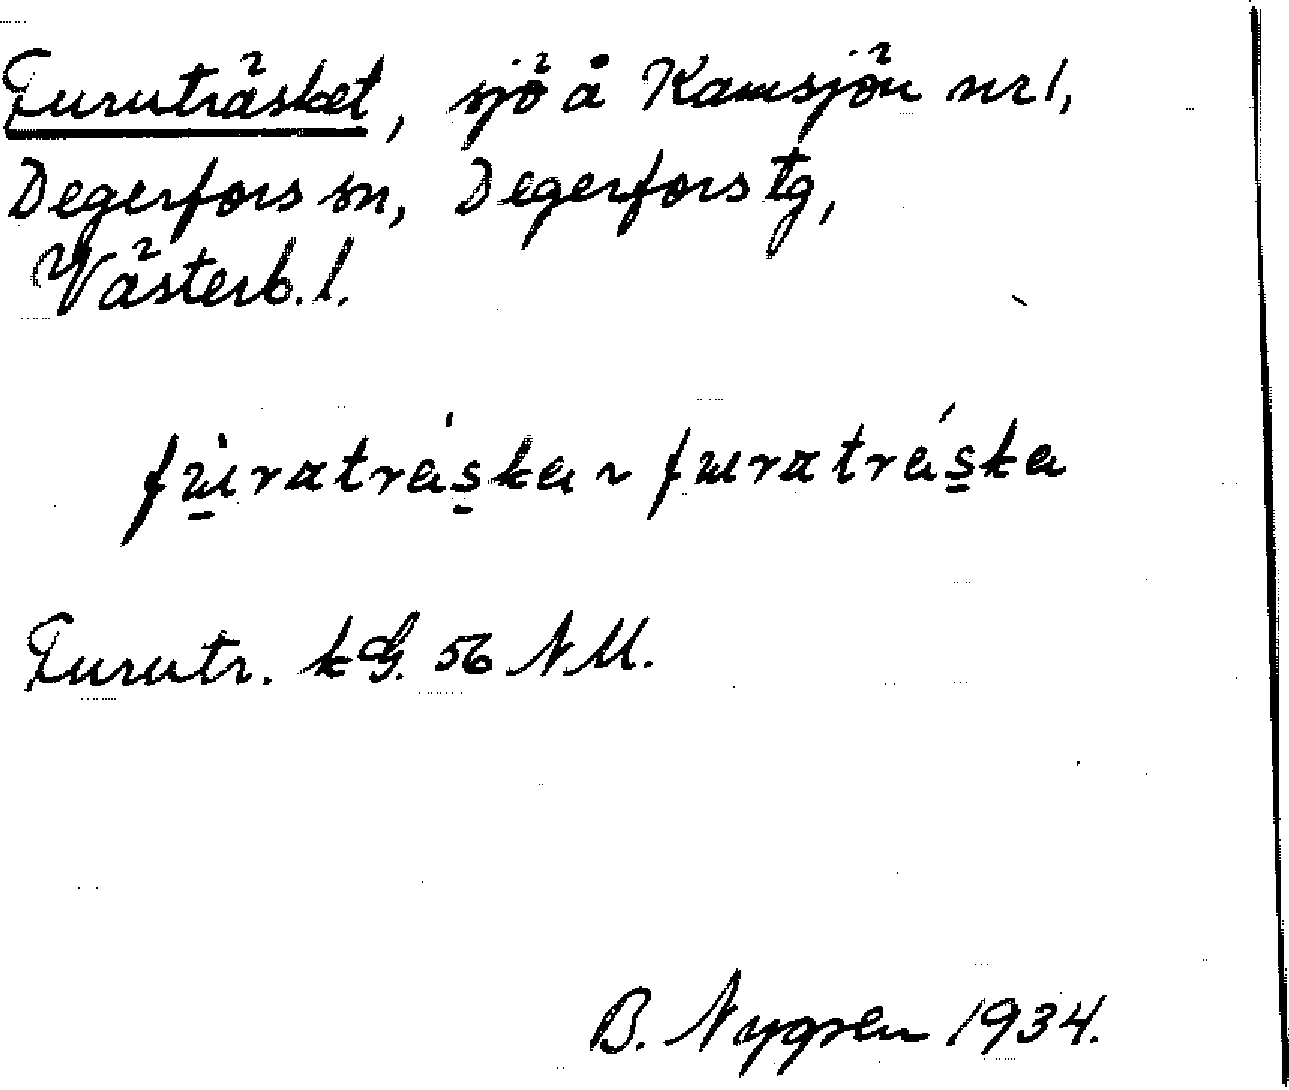 Furuträsket, sjö å Kamsjön nr 1,
Degerfors sn, Degerfors tg,
Västerb. l.
fùratráska ~ furatráska
Furutr. kG. 56 NM.
B. Nygren 1934.